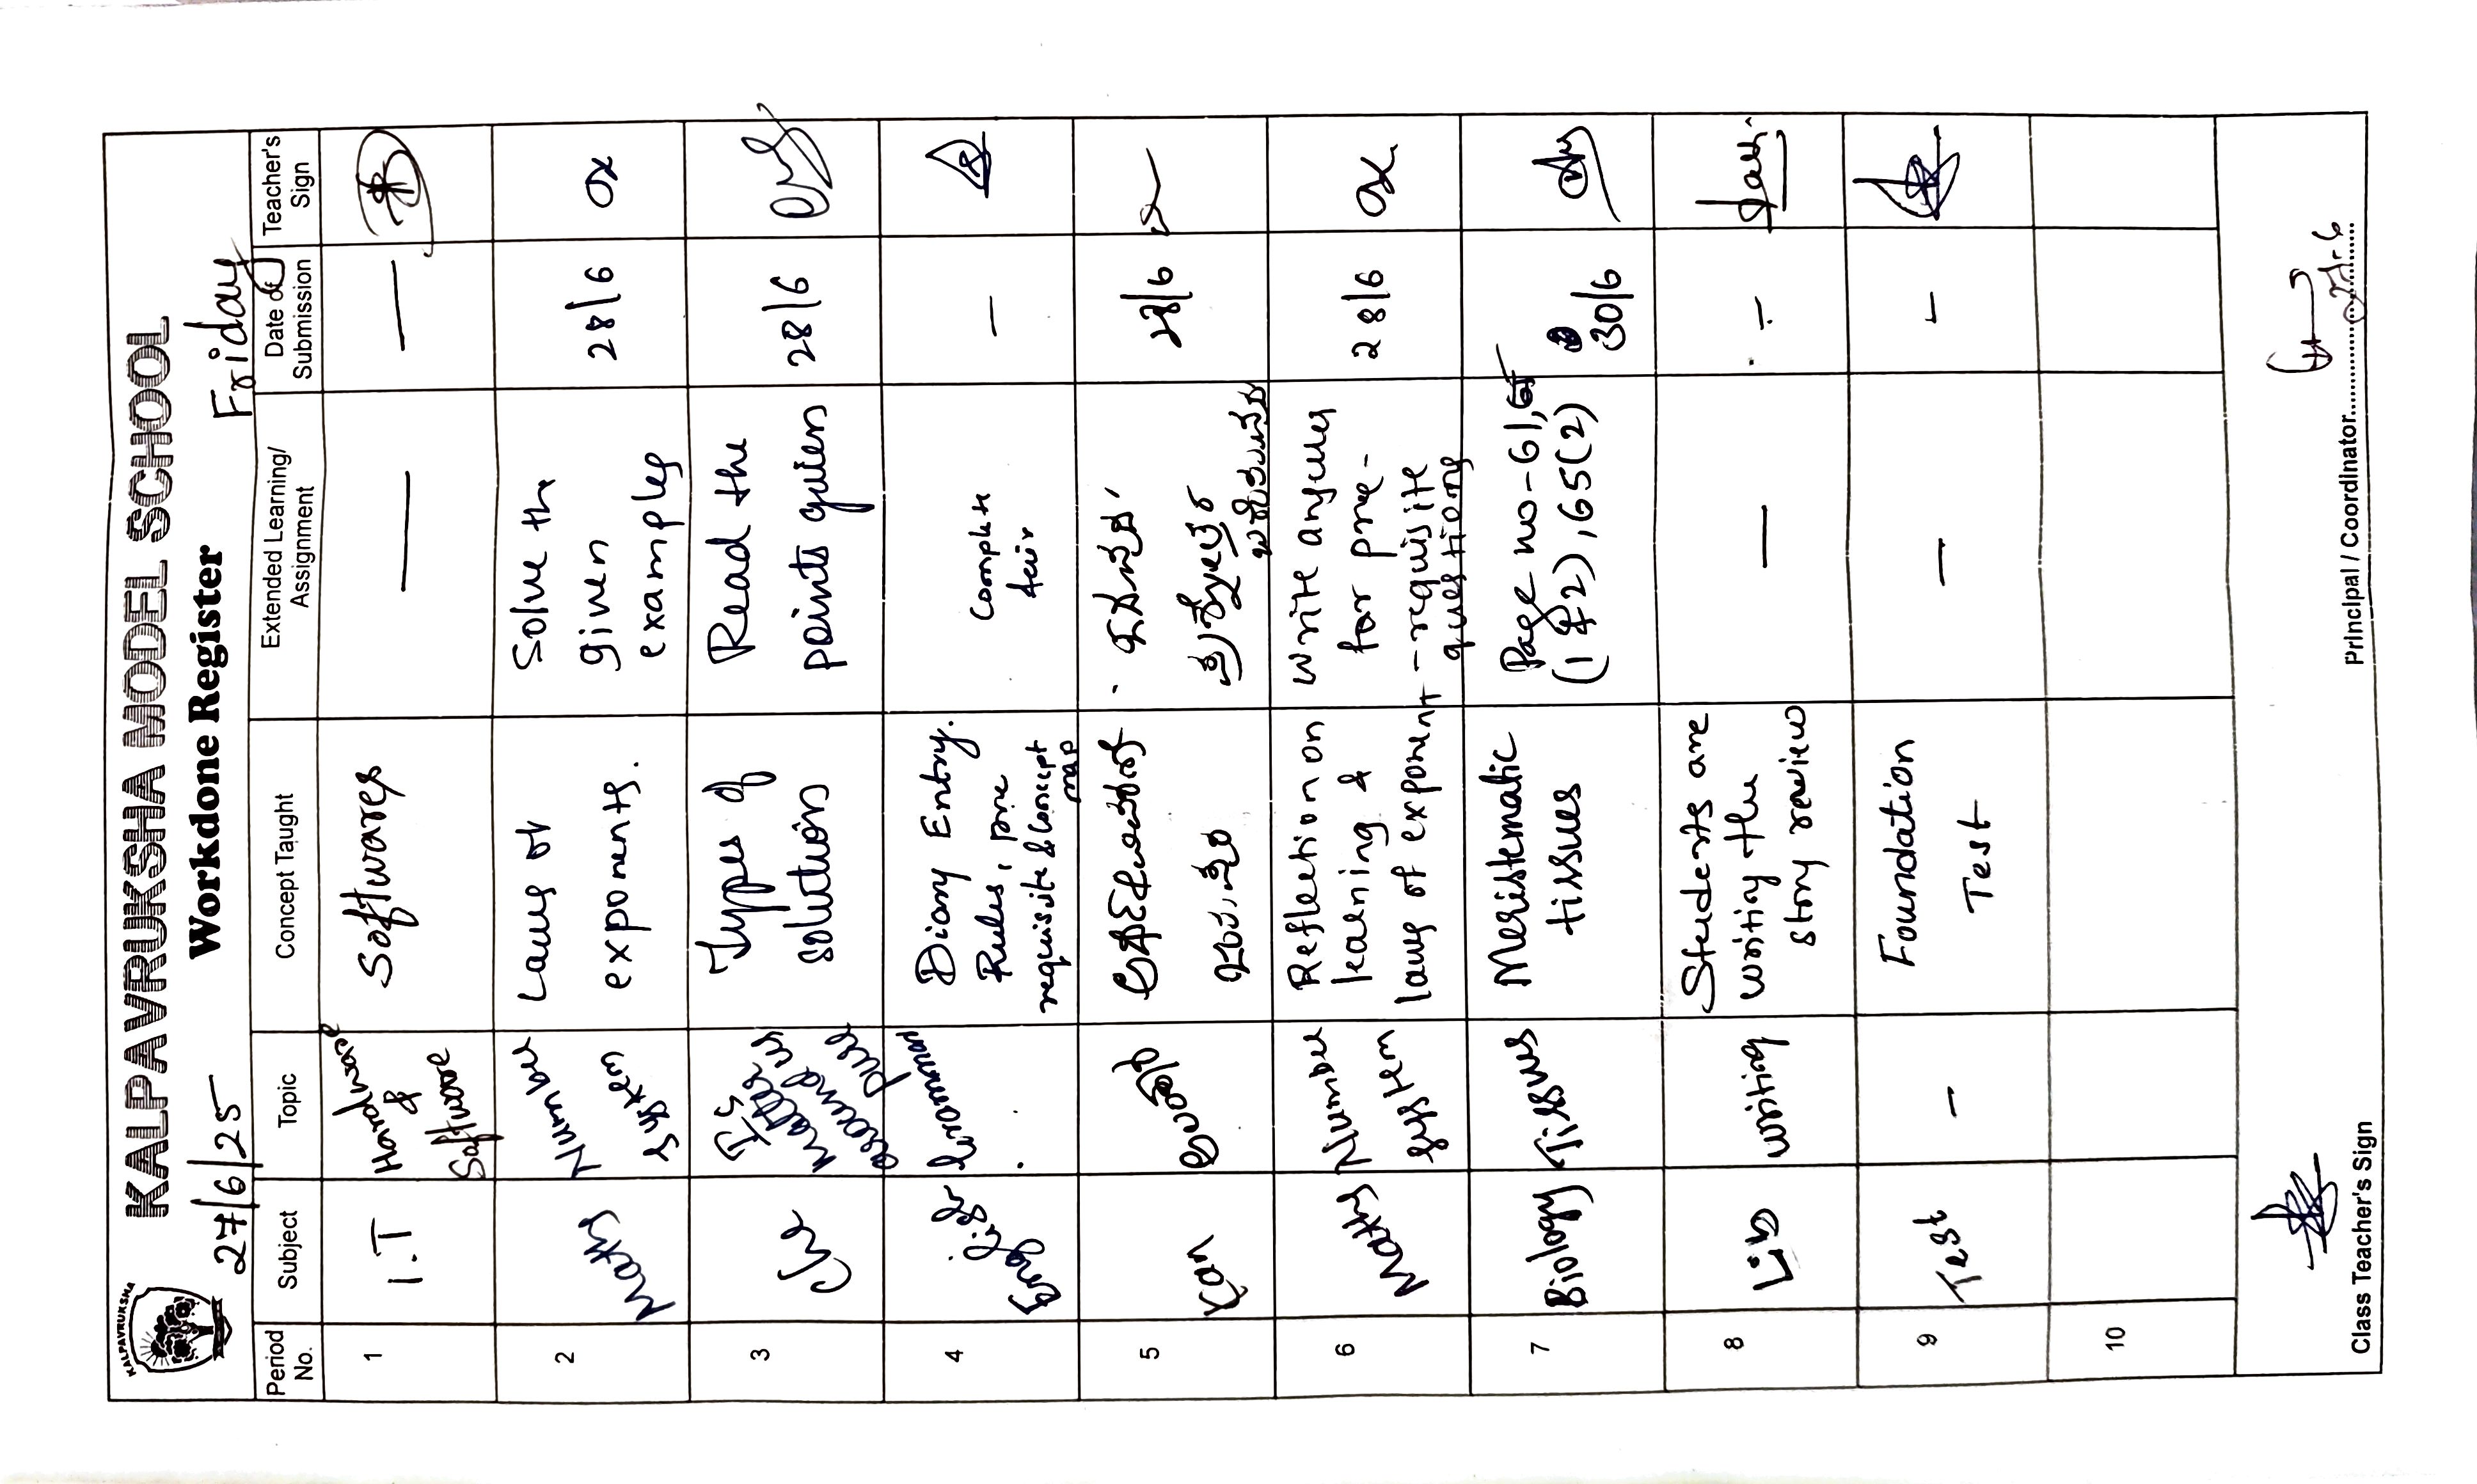 KALPAVRUKSHA
KALPAVRUKSHA MODEL SCHOOL
Workdone Register
27/6/25
Friday
Period No.
Subject
Topic
Concept Taught
Extended Learning/ Assignment
Date of Submission
Teacher's Sign
1
I.T
Hardware
&
Software
Softwares
—
—
2
Maths
Number
system
Laws of
exponents.
Solve the
given
examples
28/6
3
Che
Is
Matter
around us
Pure
Types of
solutions
Read the
points given
28/6
4
English
Grammar
Diary Entry.
Rules, pre
requisite & concept
map
Complete
fair
—
5
Kan
28/6
6
Maths
Number
system
Reflection on
learning &
laws of exponent
write answers
for pre-
-requisite
questions
28/6
7
Biology
Tissues
Meristematic
tissues
Page no-61,
(1 & 2), 65(2)
30/6
8
Lib
writing
Students are
writing the
story review
—
—
9
Test
—
Foundation
Test
—
—
10
Class Teacher's Sign
Principal / Coordinator